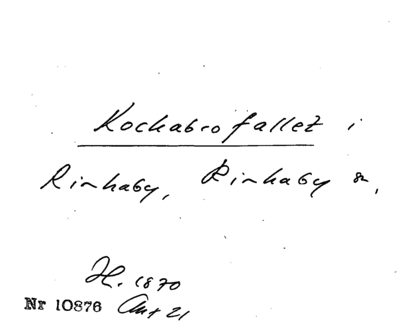 Kockabrofallet i
Rinkaby, Rinkaby sn,
H. 1870
Nr 10876 Ant 21